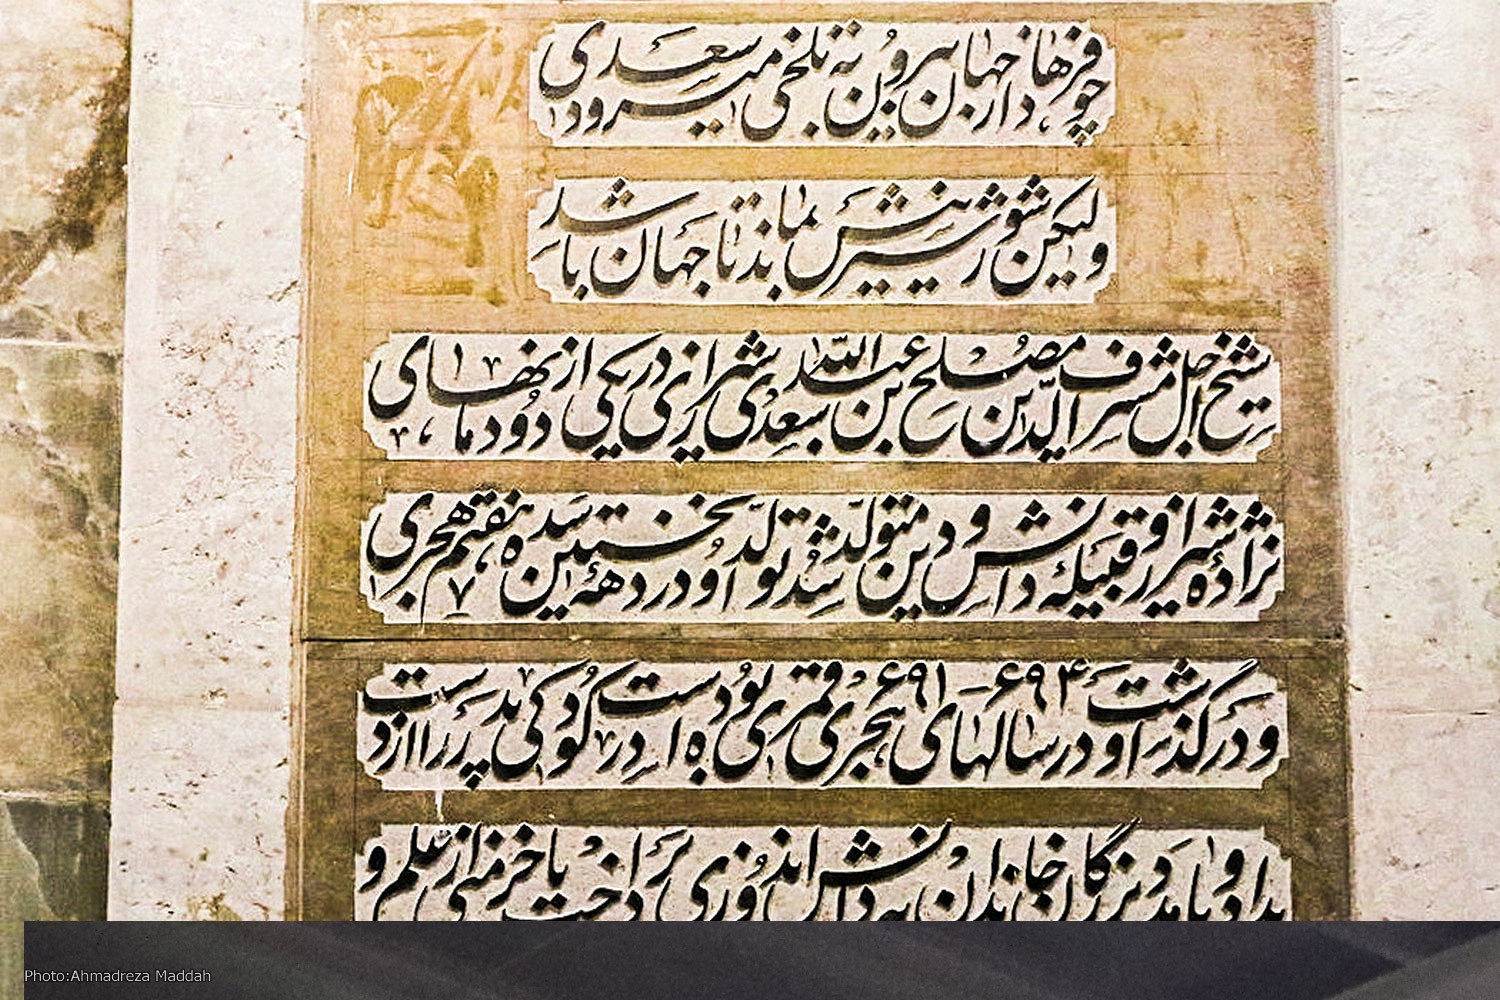 چو فرهاد از جهان بیرون به تلخی میرود سعدی
ولیکن شور شیرینش بماند تا جهان باشد
شیخ اجل مشرف الدین مصلح بن عبدالله سعدی شیرازی در یکی از دودمانهای
نژاده شیراز و قبیلهٔ دانش و دین متولد شد تولد او در دههٔ نخستین سده هفتم هجری
و درگذشت او در سالهای ۶۹۴ - ۶۹۱ هجری قمری بوده است در کودکی پدر را از دست
داد و با مدد بزرگان خاندان به دانش اندوزی پرداخت با خرمنی از علم و
Photo:Ahmadreza Maddah